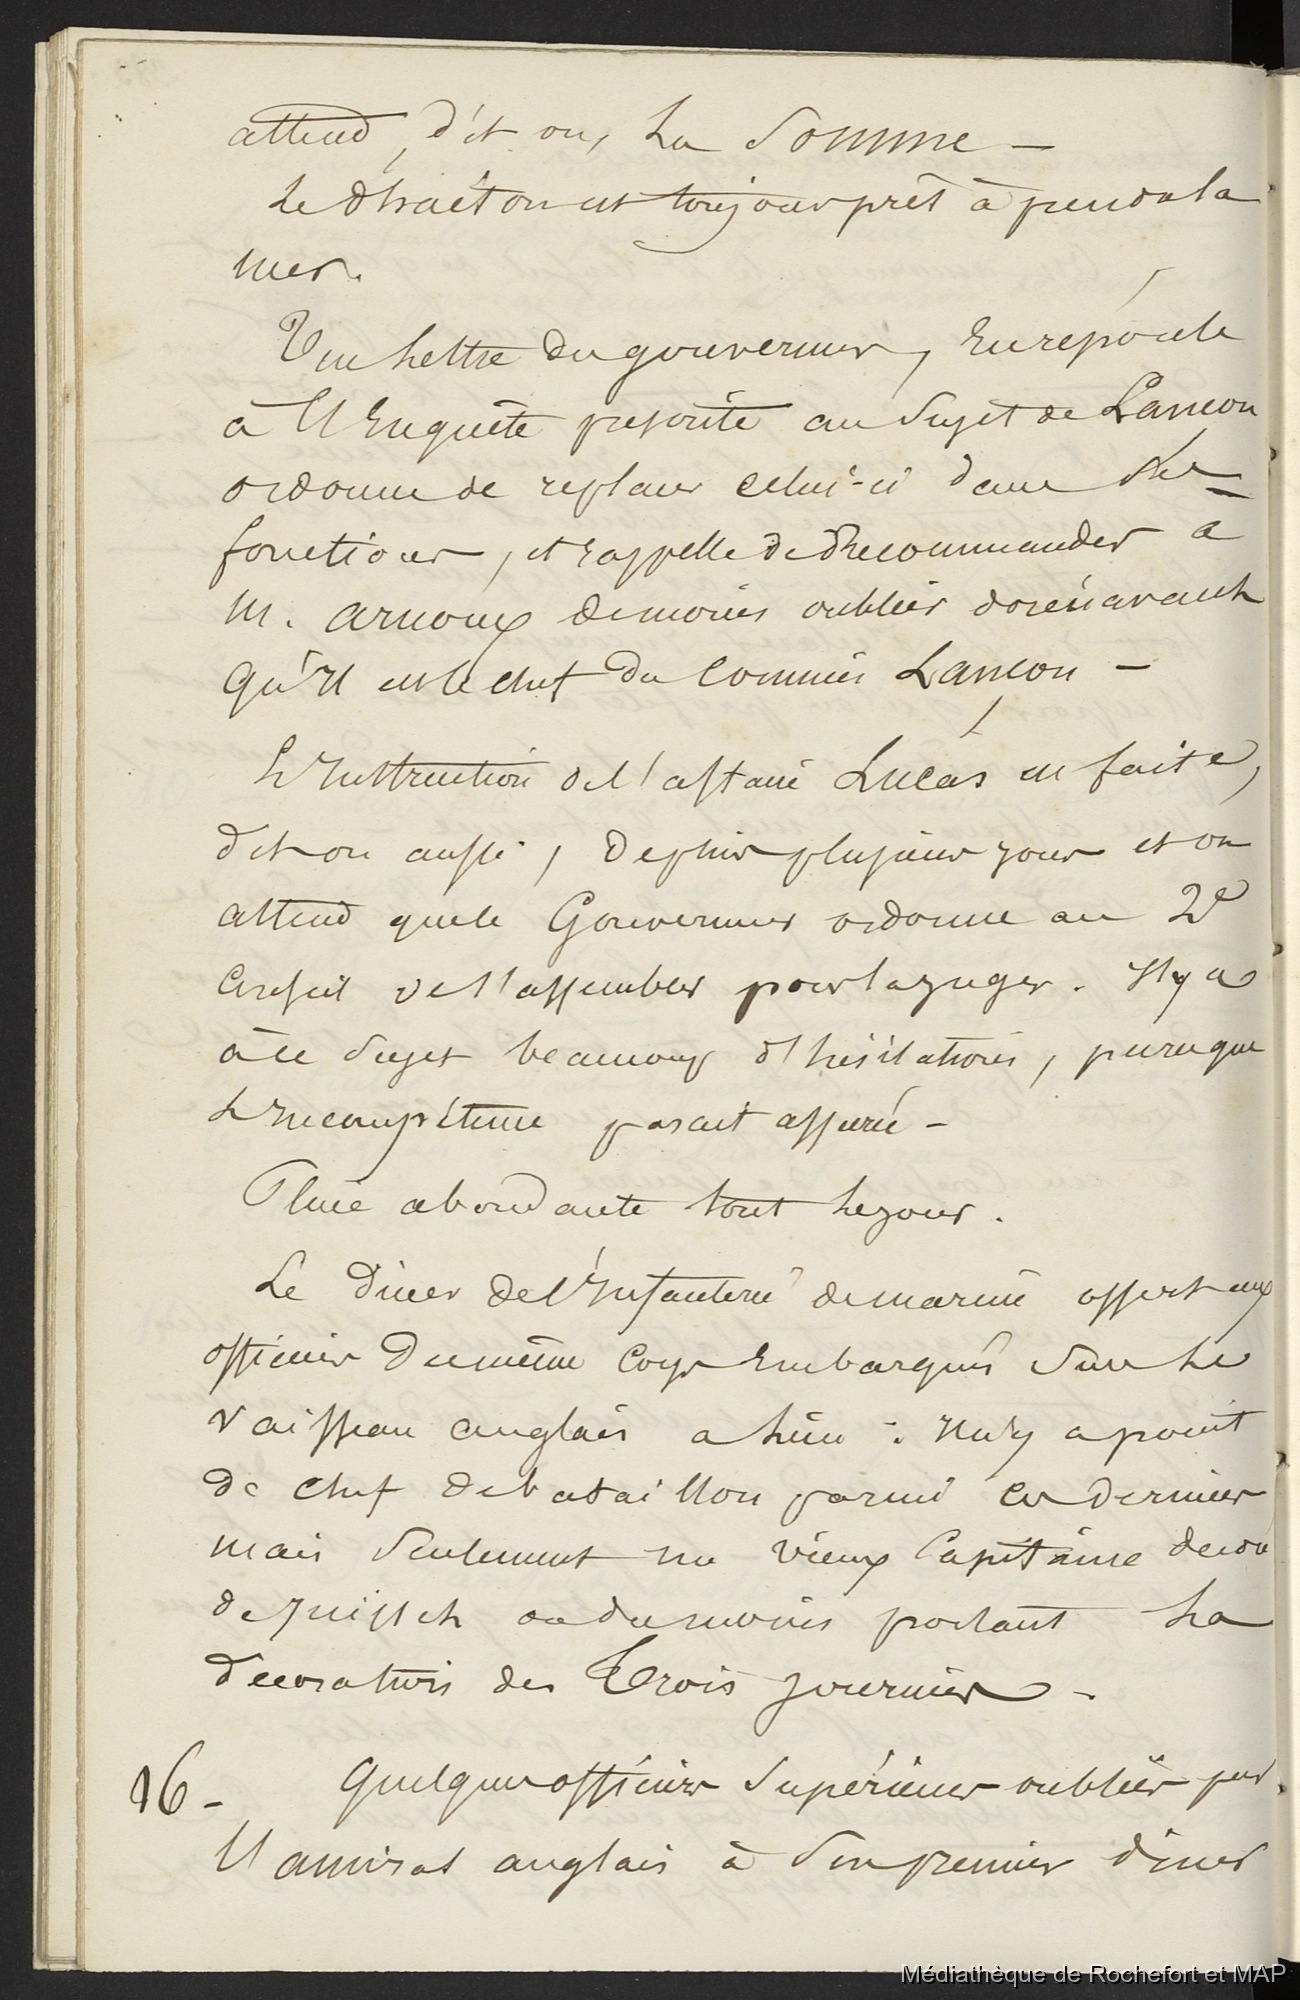 attend, dit on, la Somme —
Le Phaéton est toujours prêt à prendre la
mer.
Une lettre du gouverneur, en réponse
à l'Enquête prescrite au sujet de Lanson
ordonne de replacer celui-ci dans ses
fonctions, et rappelle de recommander à
M. Arnoux de moins oublier dorénavant
qu'il est le chef du commis Lanson —
L'Instruction de l'affaire Lucas est faite,
dit on aussi, depuis plusieurs jours et on
attend que le Gouverneur ordonne au 2e
Conseil de s'assembler pour la juger. Il y a
à ce sujet beaucoup d'hésitations, parceque
l'Incompétence parait assurée —
Pluie abondante tout le jour.
Le diner de l'Infanterie de marine offert aux
officiers du même corps embarqués sur le
vaisseau anglais a lieu : il n'y a point
de chef de bataillon parmi ces derniers
mais seulement un vieux Capitaine décoré
de juillet ou du moins portant la
décoration des Trois journées —
16 - Quelques officiers supérieurs oubliés par
l'amiral anglais à son premier diner
Médiathèque de Rochefort et MAP